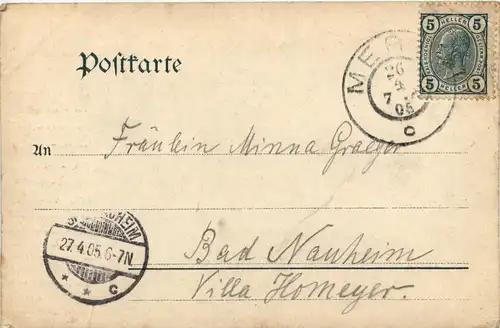 Postkarte
ME
26
4
7
05
C
5 HELLER 5
5 HELLER 5
An
Fräulein Minna Graeger
27.4.05.6-7N
* * C
Bad Nauheim
Villa Homeyer.